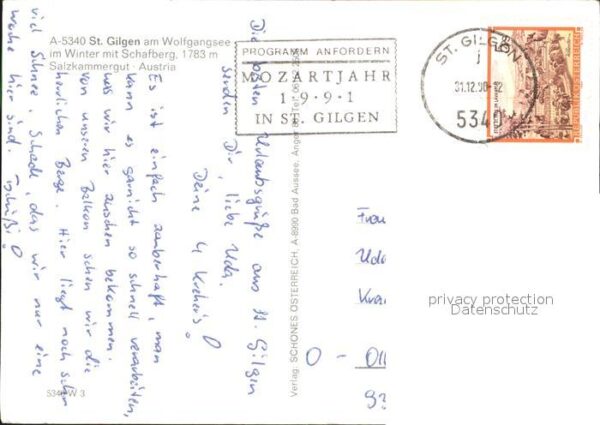 A-5340 St. Gilgen am Wolfgangsee
im Winter mit Schafberg, 1783 m
Salzkammergut · Austria
PROGRAMM ANFORDERN
MOZARTJAHR
1991
IN ST. GILGEN
ST. GILGEN
31.12.90-12
5340
REPUBLIK ÖSTERREICH
Die besten Urlaubsgrüße aus St. Gilgen
senden Dir, liebe Uda,
Deine 4
Es ist einfach zauberhaft, man
kann es garnicht so schnell verarbeiten,
was wir hier zusehen bekommen.
Von unseren Balkon sehen wir die
herrlichen Berge. Hier liegt noch sehr
viel Schnee. Schade, das wir nur eine
Woche hier sind. Tschüßi!
Verlag: SCHÖNES ÖSTERREICH, A-8990 Bad Aussee, Anger
Frau
Uda
O -
5340 W 3
privacy protection
Datenschutz